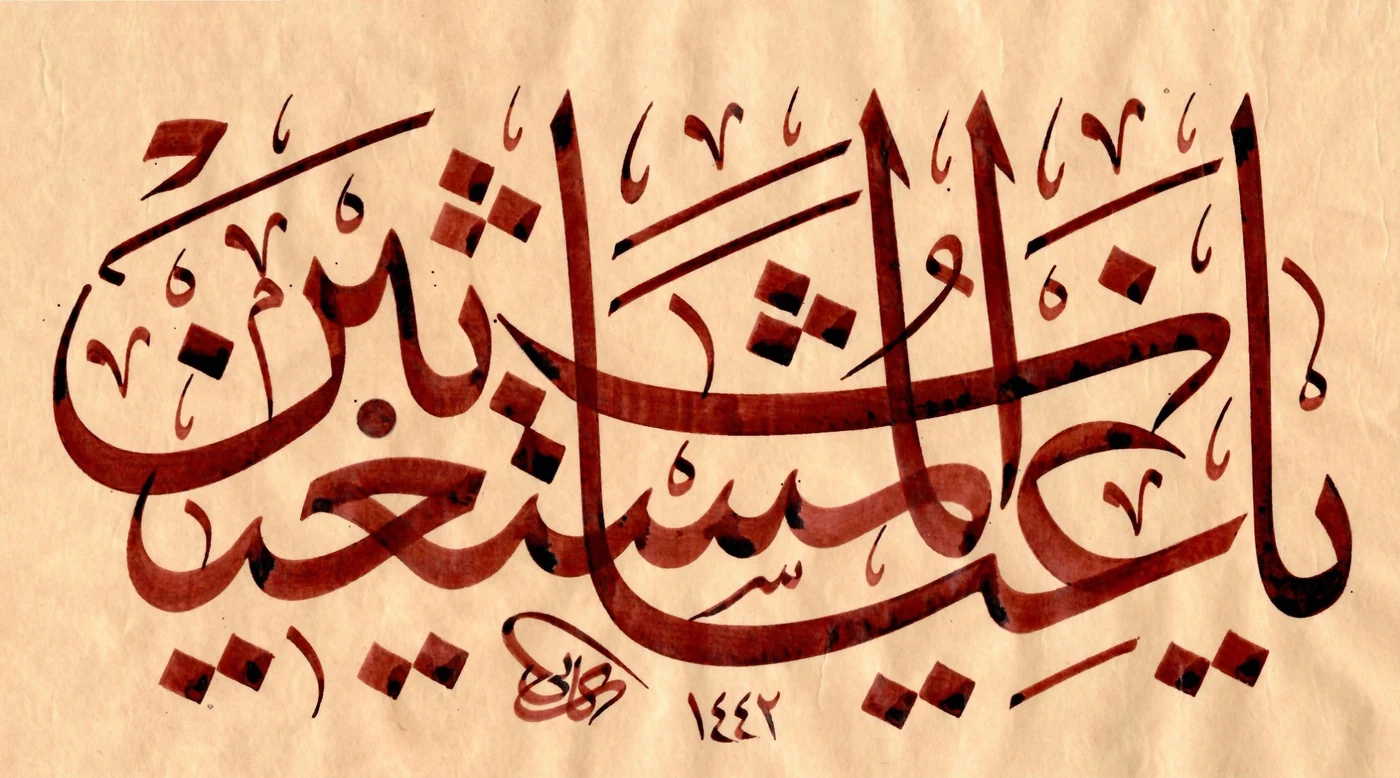 يا غياث المستغيثين
١٤٤٢